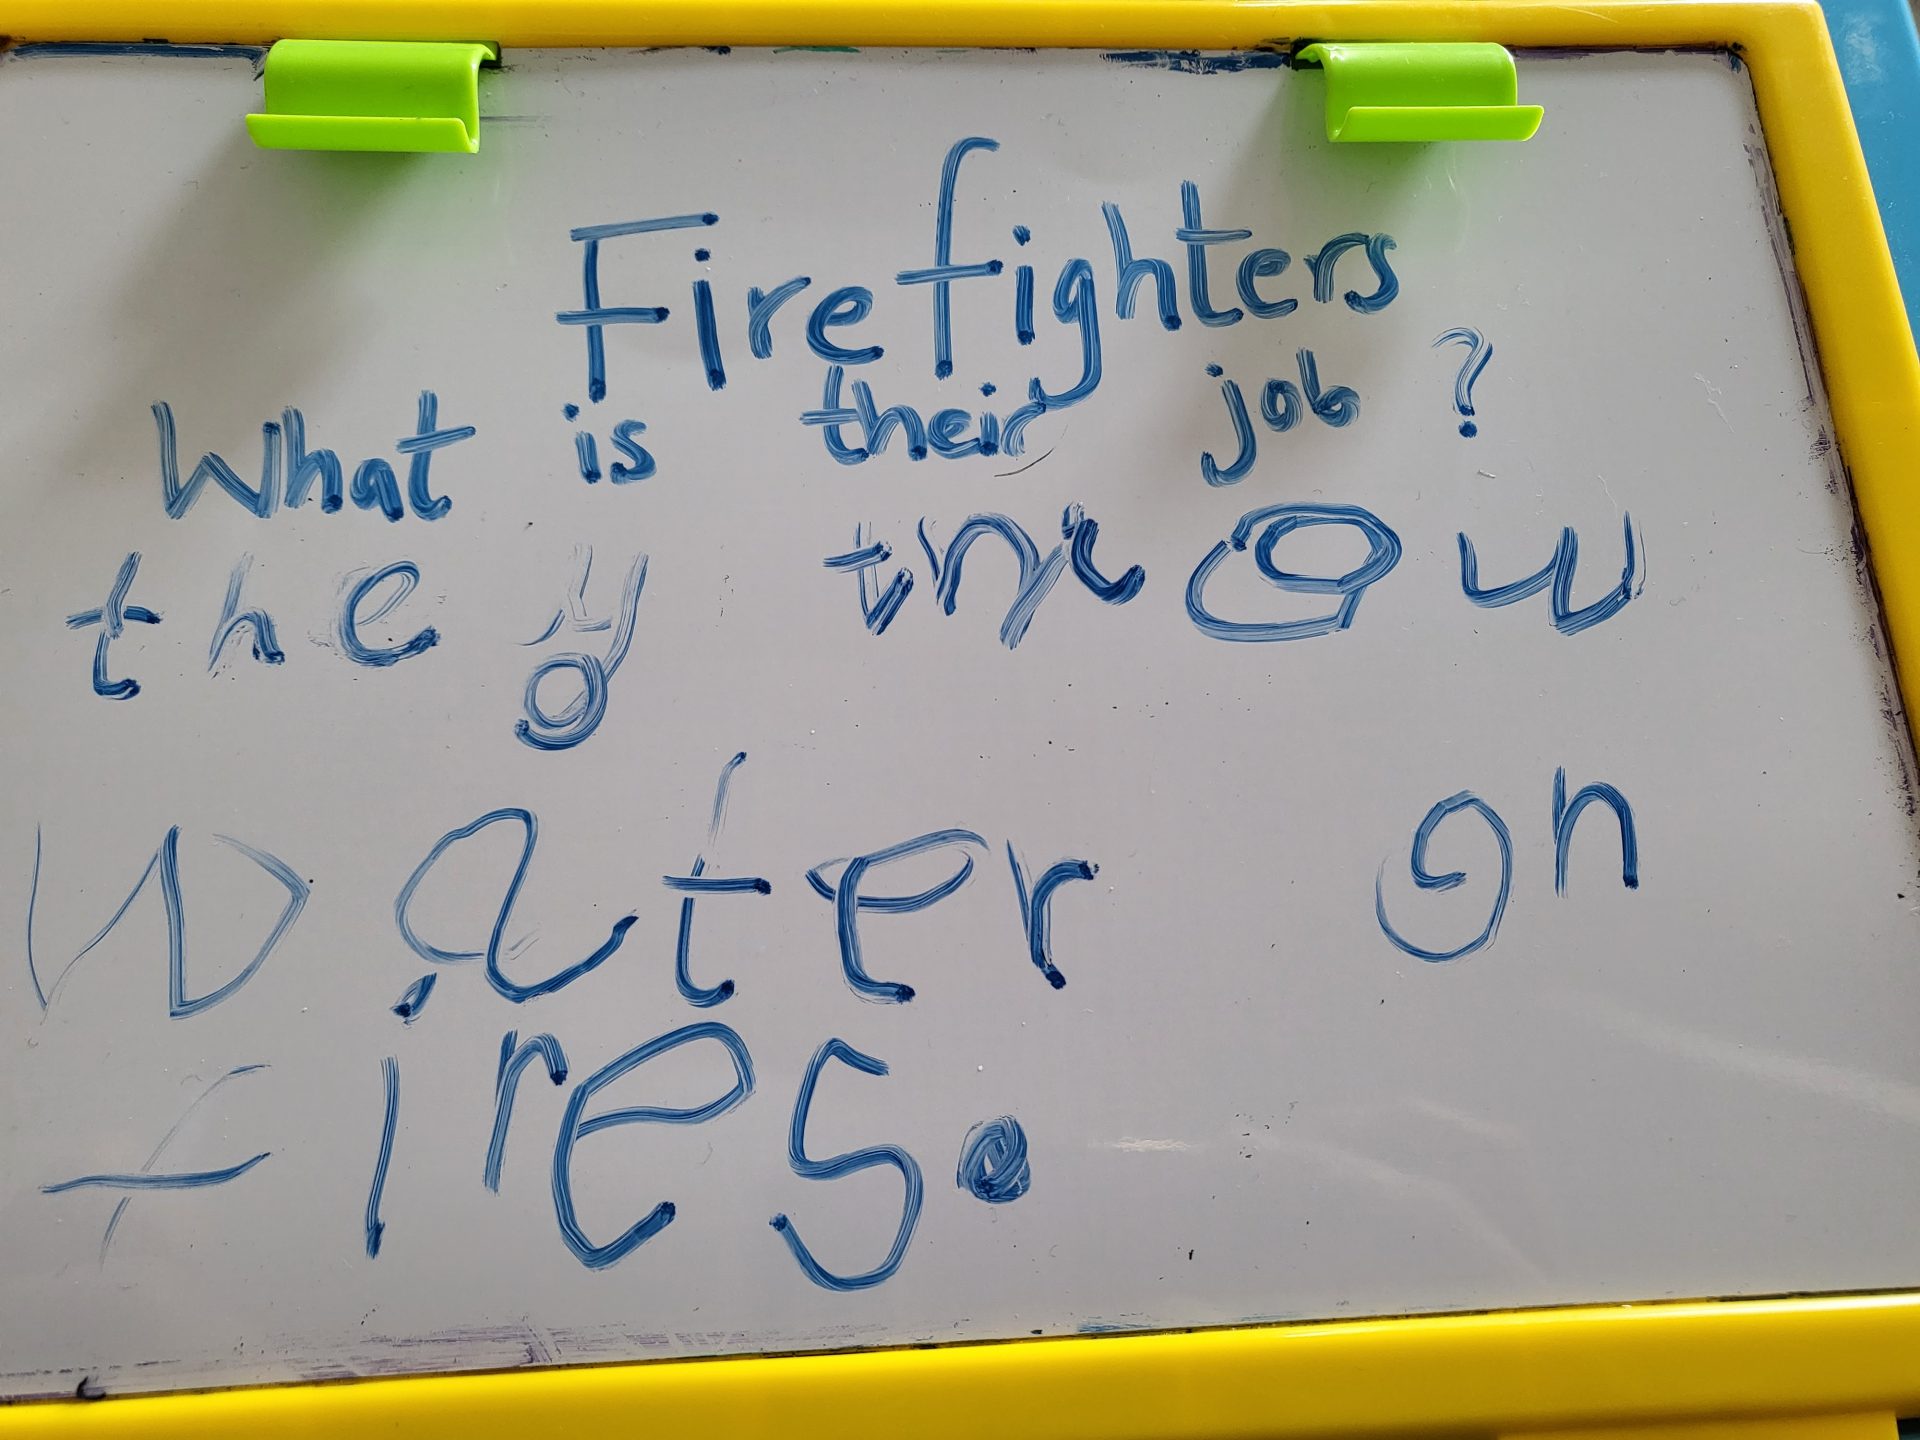 Firefighters
What is their job?
they throw
water on
fires.